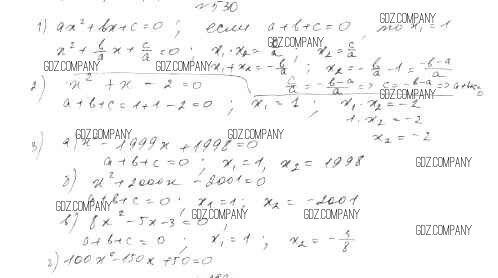 №530
1) ax² + bx + c = 0 ; если a + b + c = 0 , то x₁ = 1
x² + b/a x + c/a = 0 ; x₁·x₂ = c/a ; x₂ = c/a
x₁ + x₂ = -b/a ; x₂ = -b/a - 1 = (-b-a)/a
c/a = (-b-a)/a => c = -b-a => a+b+c=0
2) x² + x - 2 = 0
a + b + c = 1 + 1 - 2 = 0 ; x₁ = 1 ; x₁·x₂ = -2
1·x₂ = -2
x₂ = -2
3) а) x - 1999x + 1998 = 0
a + b + c = 0 ; x₁ = 1, x₂ = 1998
б) x² + 2000x - 2001 = 0
a + b + c = 0 ; x₁ = 1 ; x₂ = -2001
в) 8x² - 5x - 3 = 0 ;
a + b + c = 0 ; x₁ = 1 ; x₂ = -3/8
г) 100x² - 150x + 50 = 0
GDZ.COMPANY
GDZ.COMPANY
GDZ.COMPANY
GDZ.COMPANY
GDZ.COMPANY
GDZ.COMPANY
GDZ.COMPANY
GDZ.COMPANY
GDZ.COMPANY
GDZ.COMPANY
GDZ.COMPANY
GDZ.COMPANY